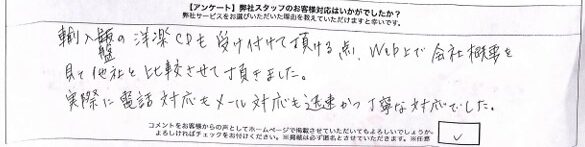 【アンケート】弊社スタッフのお客様対応はいかがでしたか?
弊社サービスをお選びいただいた理由を教えていただけますと幸いです。
輸入盤の洋楽CDも受け付けて頂ける点、Web上で会社概要を
見て他社と比較させて頂きました。
実際に電話対応もメール対応も迅速かつ丁寧な対応でした。
コメントをお客様からの声としてホームページで掲載させていただいてもよろしいでしょうか。
よろしければチェックをお付けください。※掲載は必ず匿名とさせていただきます。※任意